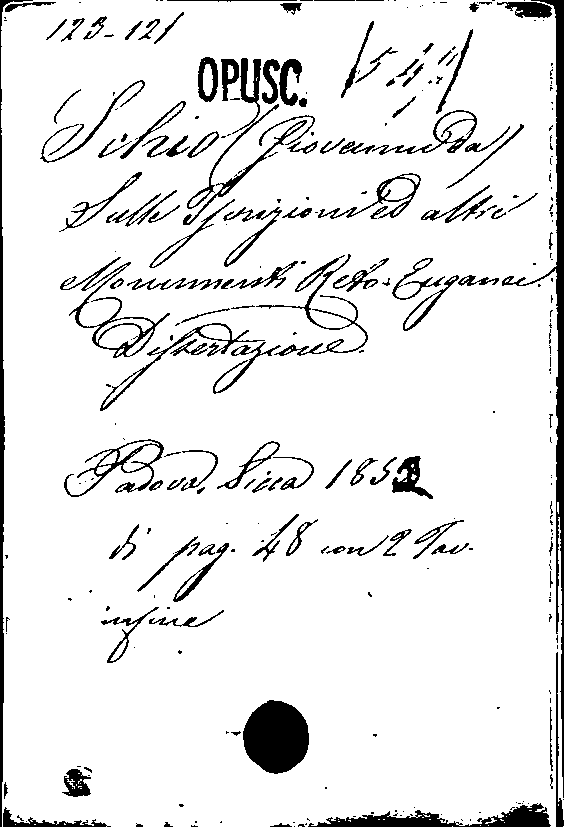 123-121
OPUSC.
Schio (Giovanni da)
Sulle Iscrizioni ed altri
Monumenti Reto-Euganei.
Dissertazione.
Padova, Sicca 185
di pag. 48 con 2 Tav.
infine